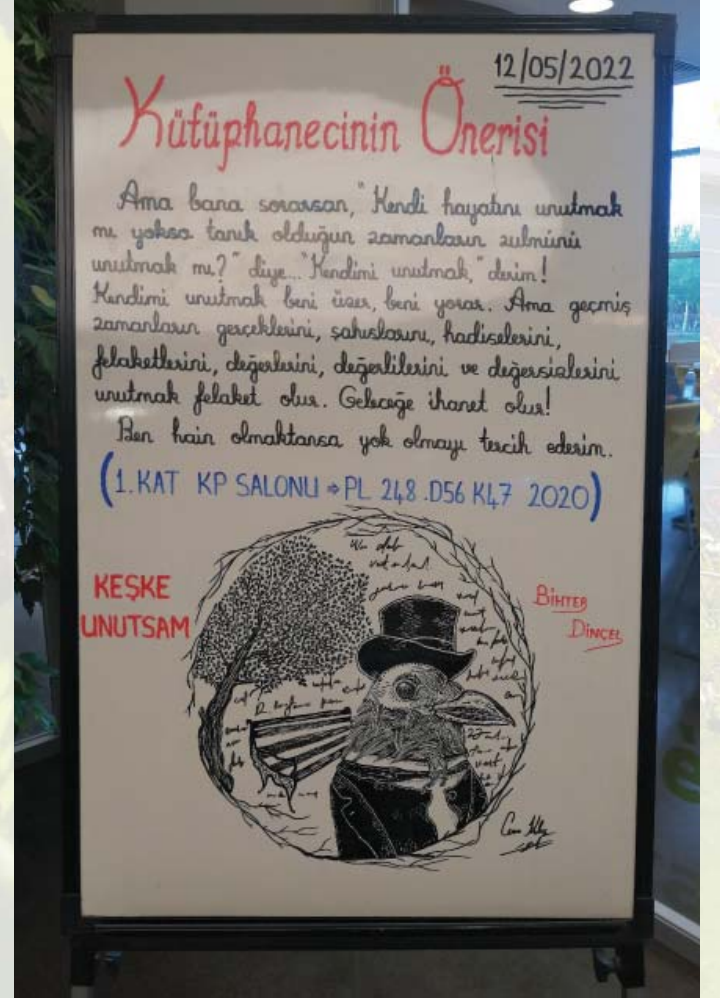 12/05/2022
Kütüphanecinin Önerisi
Ama bana sorarsan, "Kendi hayatını unutmak
mı yoksa tanık olduğun zamanların zulmünü
unutmak mı?" diye... "Kendimi unutmak," derim!
Kendimi unutmak beni üzer, beni yorar. Ama geçmiş
zamanların gerçeklerini, şahıslarını, hadiselerini,
felaketlerini, değerlerini, değerlilerini ve değersizlerini
unutmak felaket olur. Geleceğe ihanet olur!
Ben hain olmaktansa yok olmayı tercih ederim.
(1.KAT KP SALONU ⇒ PL 248 .D56 K47 2020)
KEŞKE
UNUTSAM
BİHTER
DİNÇEL